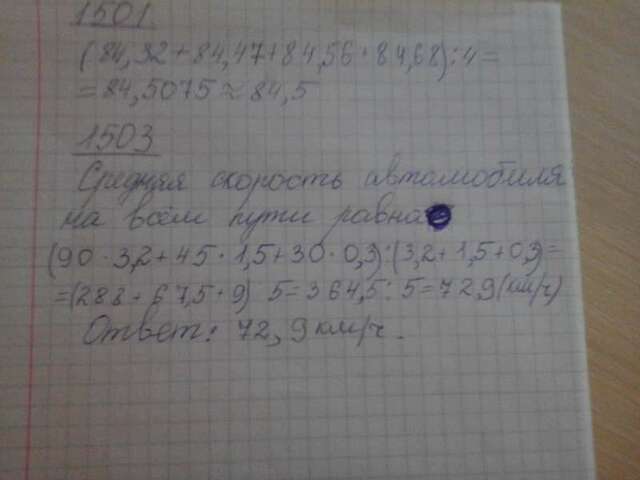 1501.
(84,32+84,47+84,56+84,68):4=
=84,5075≈84,5
1503
Средняя скорость автомобиля
на всём пути равна
(90·3,2+45·1,5+30·0,3):(3,2+1,5+0,3)=
=(288+67,5+9) 5=364,5:5=72,9(км/ч)
Ответ: 72,9 км/ч.